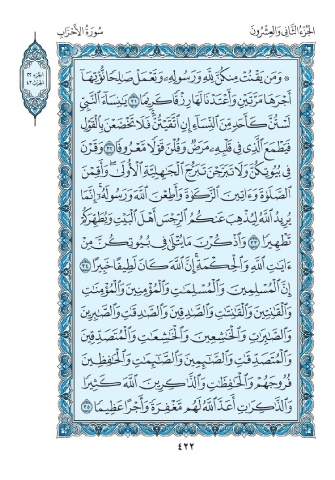 الجزء الثاني والعشرون
سورة الأحزاب
الجزء ٢٢
الحزب ٤٣
۞ وَمَن يَقْنُتْ مِنكُنَّ لِلَّهِ وَرَسُولِهِۦ وَتَعْمَلْ صَٰلِحًا نُّؤْتِهَآ
أَجْرَهَا مَرَّتَيْنِ وَأَعْتَدْنَا لَهَا رِزْقًا كَرِيمًا ٣١ يَٰنِسَآءَ ٱلنَّبِيِّ
لَسْتُنَّ كَأَحَدٍ مِّنَ ٱلنِّسَآءِ إِنِ ٱتَّقَيْتُنَّ فَلَا تَخْضَعْنَ بِٱلْقَوْلِ
فَيَطْمَعَ ٱلَّذِي فِي قَلْبِهِۦ مَرَضٌ وَقُلْنَ قَوْلًا مَّعْرُوفًا ٣٢ وَقَرْنَ
فِي بُيُوتِكُنَّ وَلَا تَبَرَّجْنَ تَبَرُّجَ ٱلْجَٰهِلِيَّةِ ٱلْأُولَىٰ وَأَقِمْنَ
ٱلصَّلَوٰةَ وَءَاتِينَ ٱلزَّكَوٰةَ وَأَطِعْنَ ٱللَّهَ وَرَسُولَهُۥٓ إِنَّمَا
يُرِيدُ ٱللَّهُ لِيُذْهِبَ عَنكُمُ ٱلرِّجْسَ أَهْلَ ٱلْبَيْتِ وَيُطَهِّرَكُمْ
تَطْهِيرًا ٣٣ وَٱذْكُرْنَ مَا يُتْلَىٰ فِي بُيُوتِكُنَّ مِنْ
ءَايَٰتِ ٱللَّهِ وَٱلْحِكْمَةِ إِنَّ ٱللَّهَ كَانَ لَطِيفًا خَبِيرًا ٣٤
إِنَّ ٱلْمُسْلِمِينَ وَٱلْمُسْلِمَٰتِ وَٱلْمُؤْمِنِينَ وَٱلْمُؤْمِنَٰتِ
وَٱلْقَٰنِتِينَ وَٱلْقَٰنِتَٰتِ وَٱلصَّٰدِقِينَ وَٱلصَّٰدِقَٰتِ وَٱلصَّٰبِرِينَ
وَٱلصَّٰبِرَٰتِ وَٱلْخَٰشِعِينَ وَٱلْخَٰشِعَٰتِ وَٱلْمُتَصَدِّقِينَ
وَٱلْمُتَصَدِّقَٰتِ وَٱلصَّٰٓئِمِينَ وَٱلصَّٰٓئِمَٰتِ وَٱلْحَٰفِظِينَ
فُرُوجَهُمْ وَٱلْحَٰفِظَٰتِ وَٱلذَّٰكِرِينَ ٱللَّهَ كَثِيرًا
وَٱلذَّٰكِرَٰتِ أَعَدَّ ٱللَّهُ لَهُم مَّغْفِرَةً وَأَجْرًا عَظِيمًا ٣٥
٤٢٢